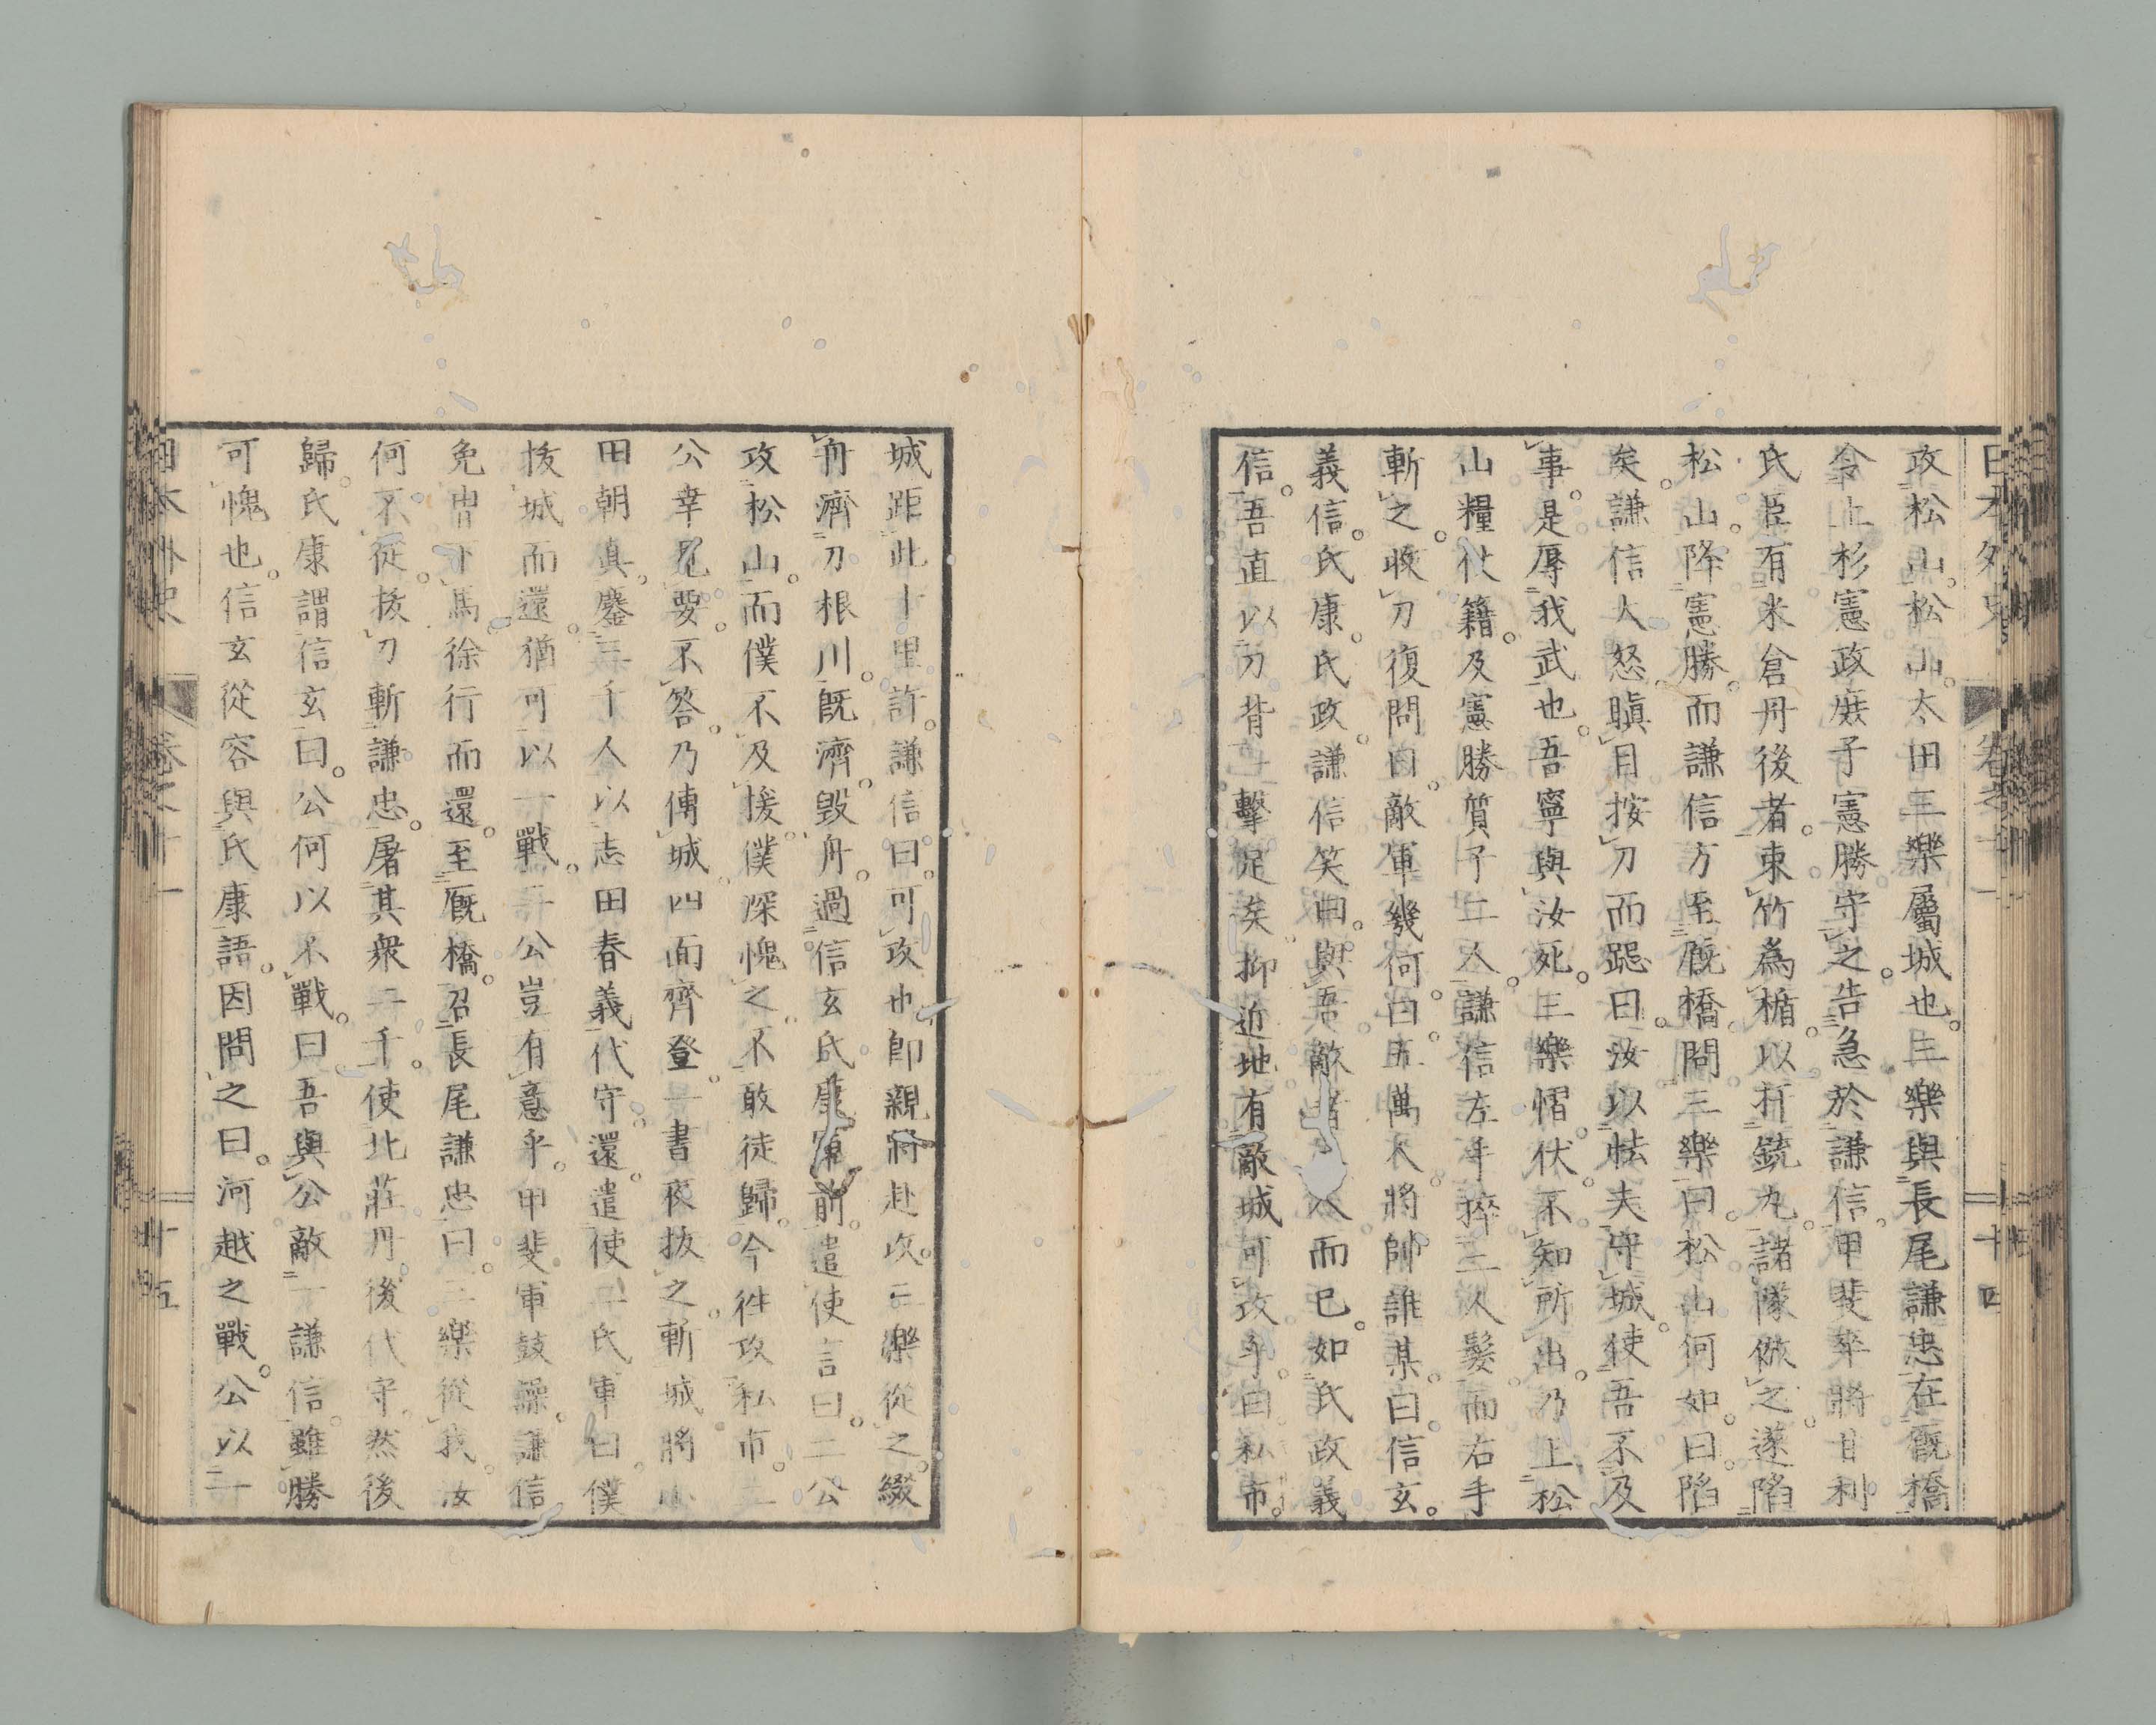 日本外史 卷之十一 十四
攻松山。松山太田三樂屬城也。三樂與長尾謙忠在厩橋
令上杉憲政庶子憲勝守之。告急於謙信。甲斐率將甘利
氏臣有米倉丹後者。束竹爲楯。以扞銃丸。諸隊倣之。遂陷
松山。降憲勝。而謙信方至厩橋。問三樂曰。松山何如。曰。陷
矣。謙信大怒。瞋目按刀而跽曰。汝以怯夫守城。使吾不及
事。是辱我武也。吾寧與汝死。三樂慴伏。不知所出。乃上松
山糧仗籍。及憲勝質子二人。謙信左手捽二人髮。而右手
斬之。收刀復問曰。敵軍幾何。曰。五萬人。將帥誰某。曰。信玄。
義信。氏康。氏政。謙信笑曰。與吾敵者二人而已。如氏政義
信。吾直以刀背一擊足矣。抑近地有敵城可攻乎。曰。私市。
城距此十里許。謙信曰。可攻也。卽親將赴攻。三樂從之。綴
舟濟刀根川。既濟。毀舟。過信玄氏康軍前。遣使言曰。二公
攻松山。而僕不及援。僕深愧之。不敢徒歸。今往攻私市。二
公幸見要。不答。乃傳城。四面齊登。一晝夜拔之。斬城將小
田朝眞。鏖三千人。以志田春義代守。還。遣使二氏軍曰。僕
拔城而還。猶可以一戰。二公豈有意乎。甲斐軍鼓譟。謙信
免冑下馬。徐行而還。至厩橋。召長尾謙忠曰。三樂從我。汝
何不從。拔刀斬謙忠。屠其衆二千。使北莊丹後代守。然後
歸。氏康謂信玄曰。公何以不戰。曰。吾與公敵一謙信。雖勝
可愧也。信玄從容與氏康語。因問之曰。河越之戰。公以一
日本外史 卷之十一 廿五